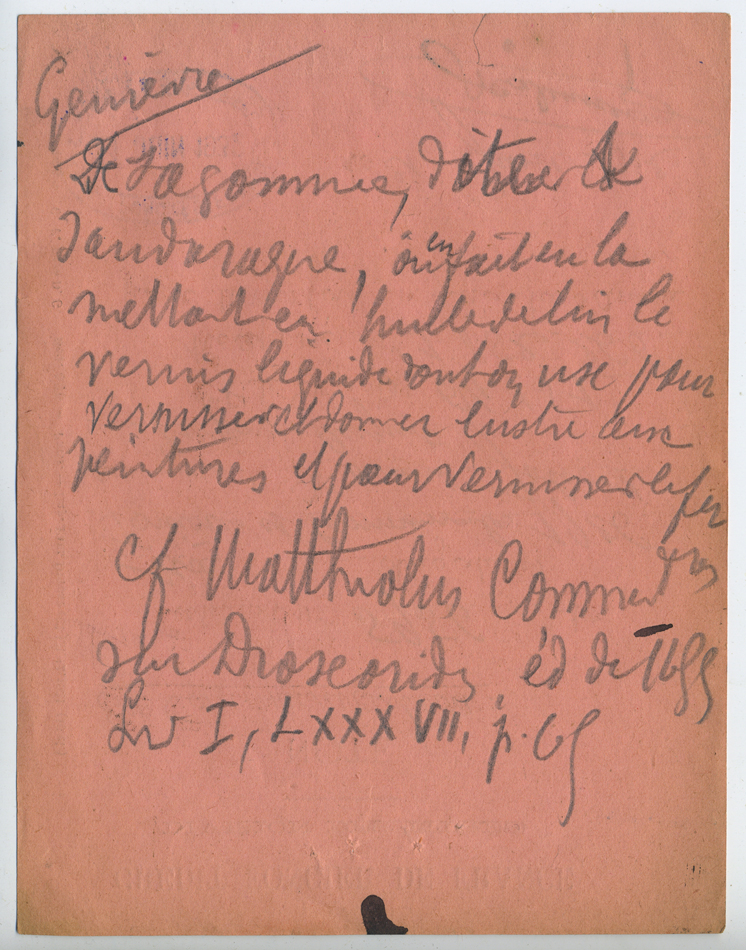 Genièvre
De la gomme, dite
Sandaraque, on en fait en la
mettant en huile de lin le
vernis liquide dont on use pour
vernisser et donner lustre aux
peintures et pour vernisser le fer
cf Matthiolus Comment
sur Dioscorides, éd de
Liv I, LXXXVII, p. 69